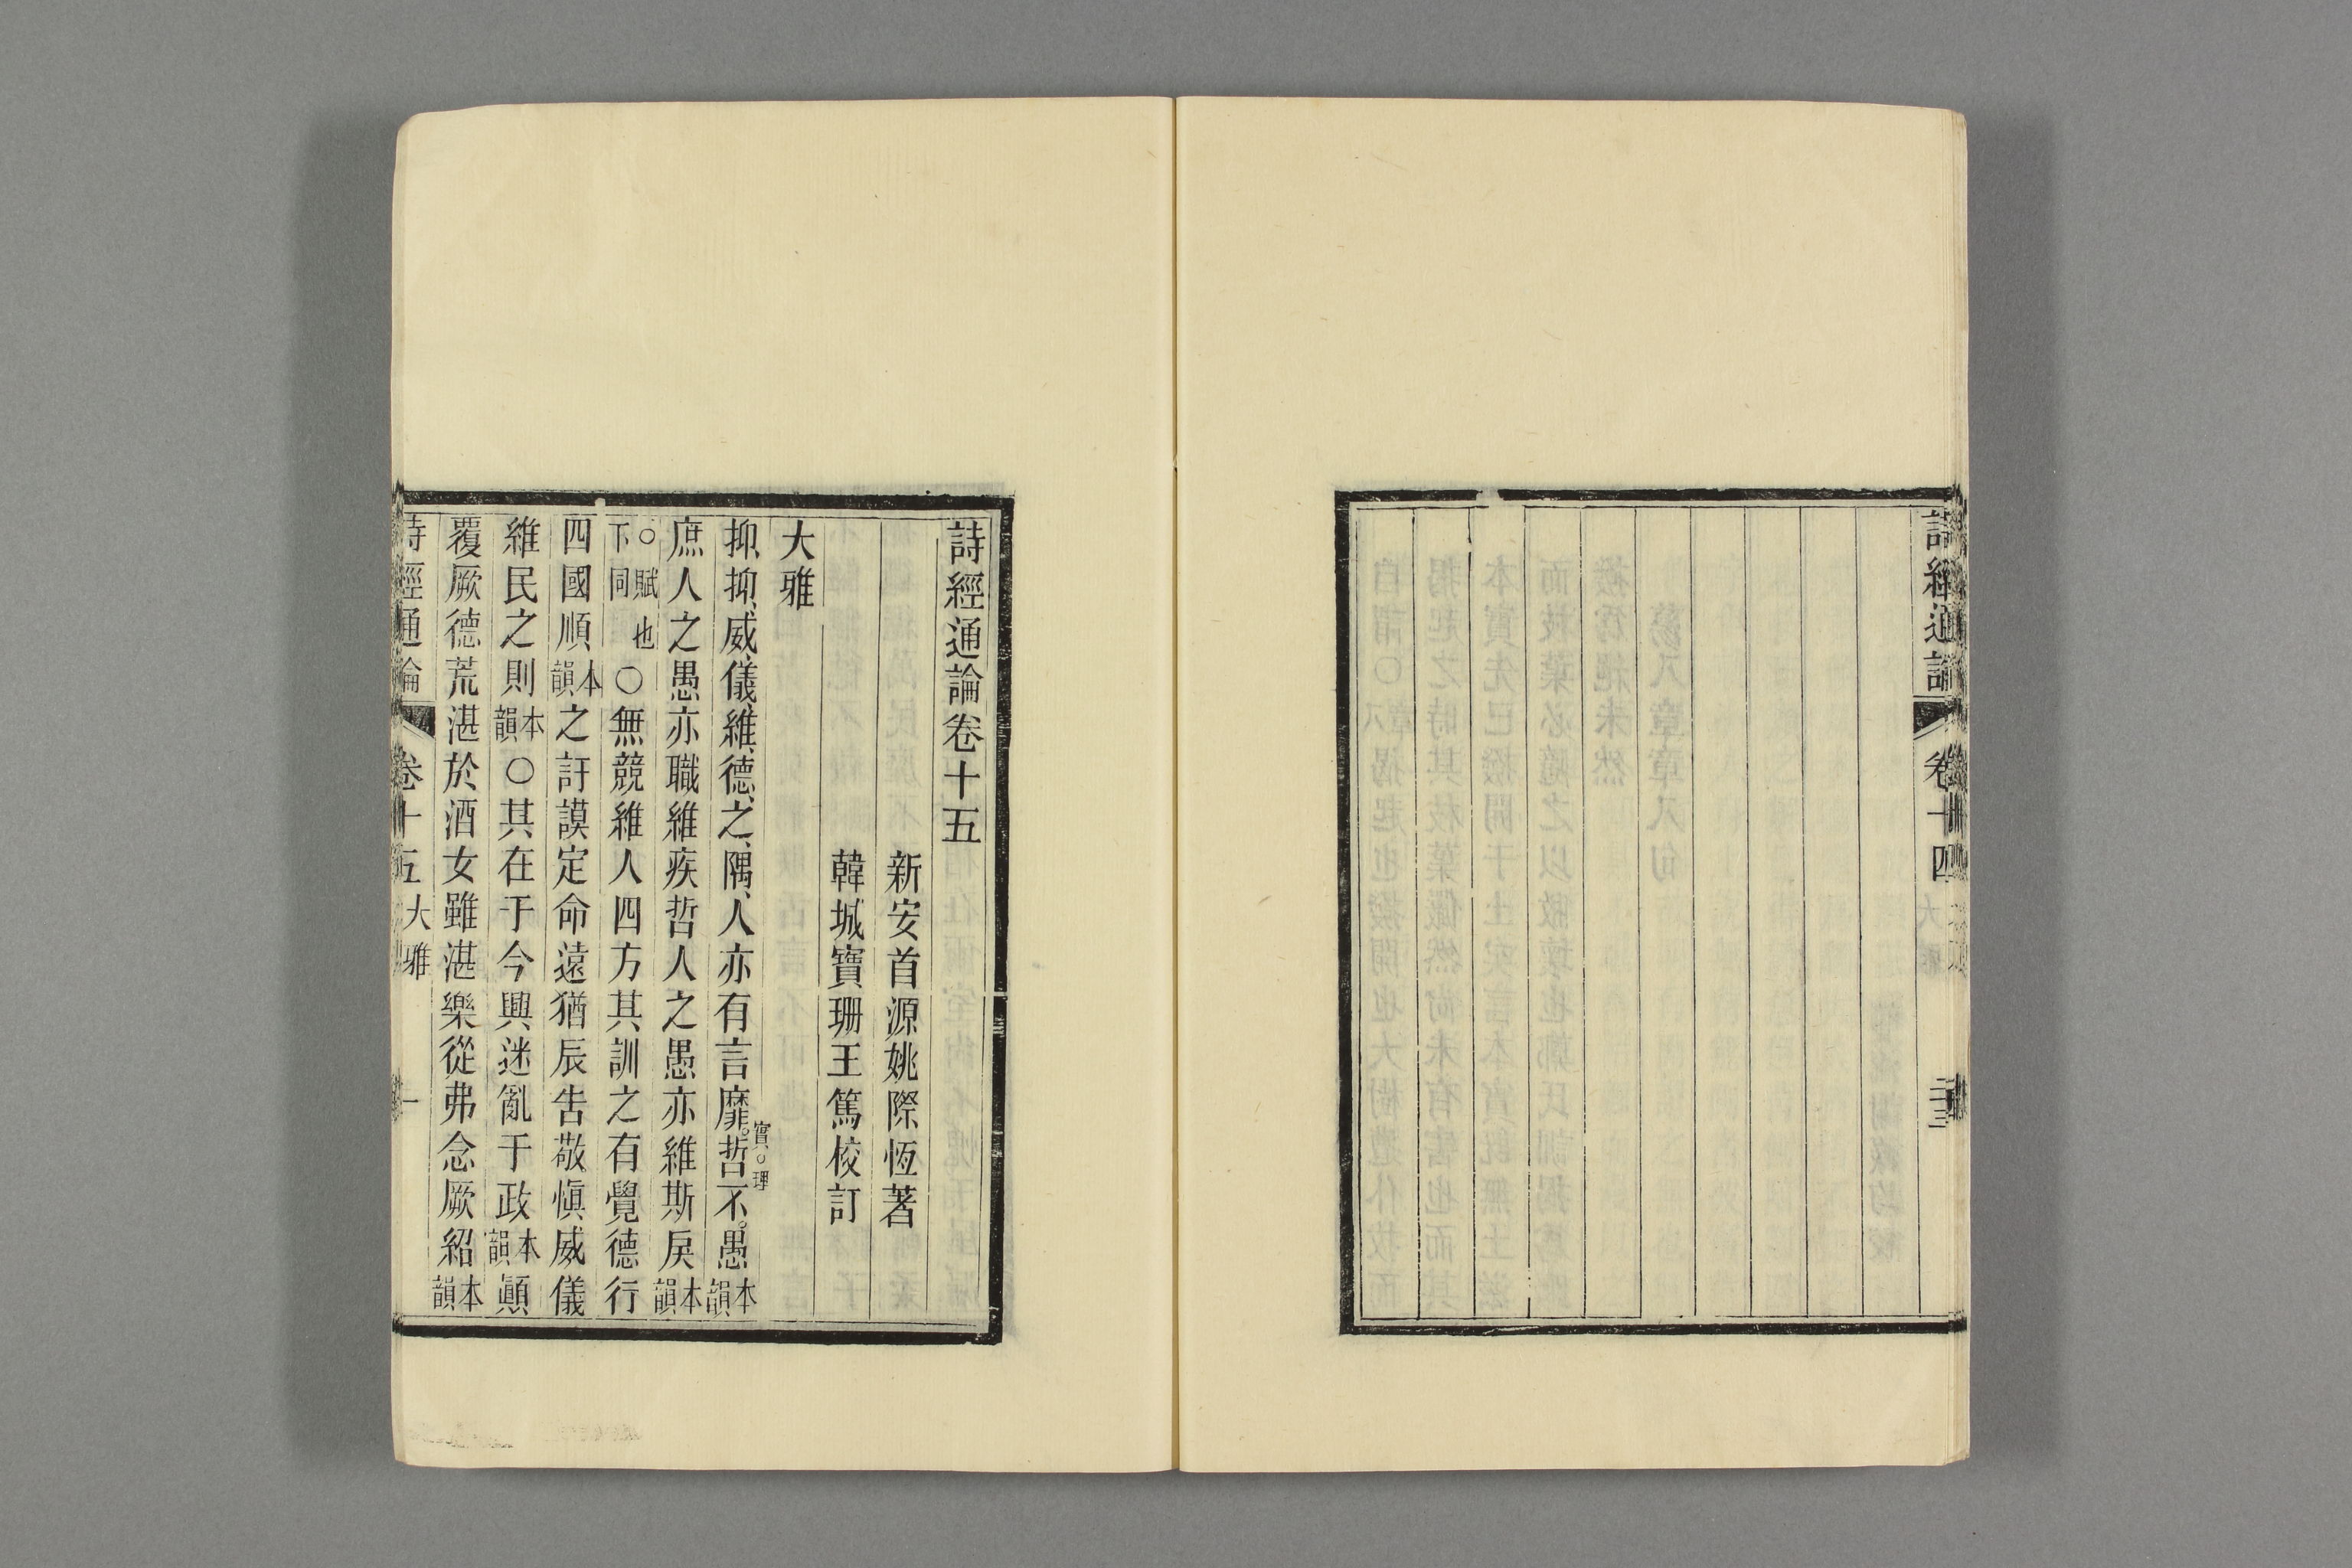 詩經通論 卷十四 大雅 二十三
詩經通論卷十五
新安首源姚際恆著
韓城寶珊王篤校訂
大雅
抑抑威儀維德之隅人亦有言靡哲不愚本韻
實理
庶人之愚亦職維疾哲人之愚亦維斯戾本韻
○賦也下同○無競維人四方其訓之有覺德行
四國順本韻之訏謨定命遠猶辰告敬慎威儀
維民之則本韻○其在于今興迷亂于政本韻顚
覆厥德荒湛於酒女雖湛樂從弗念厥紹本韻
詩經通論 卷十五 大雅 一